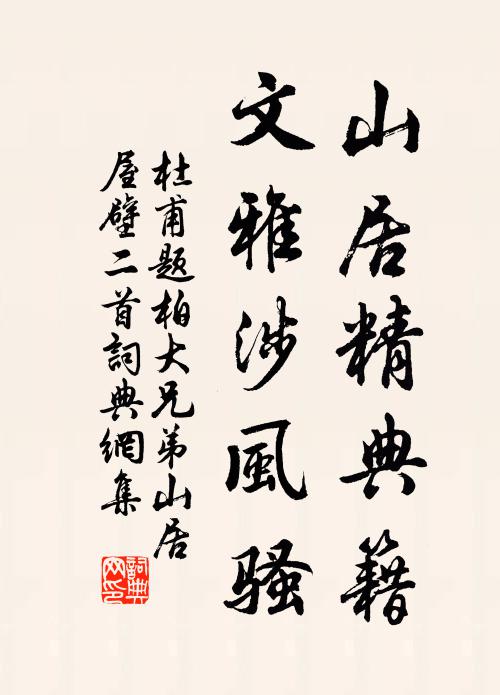 山居精典籍
文雅涉風騷
杜甫題柏大兄弟山居
屋壁二首詞典網集
詞典网印